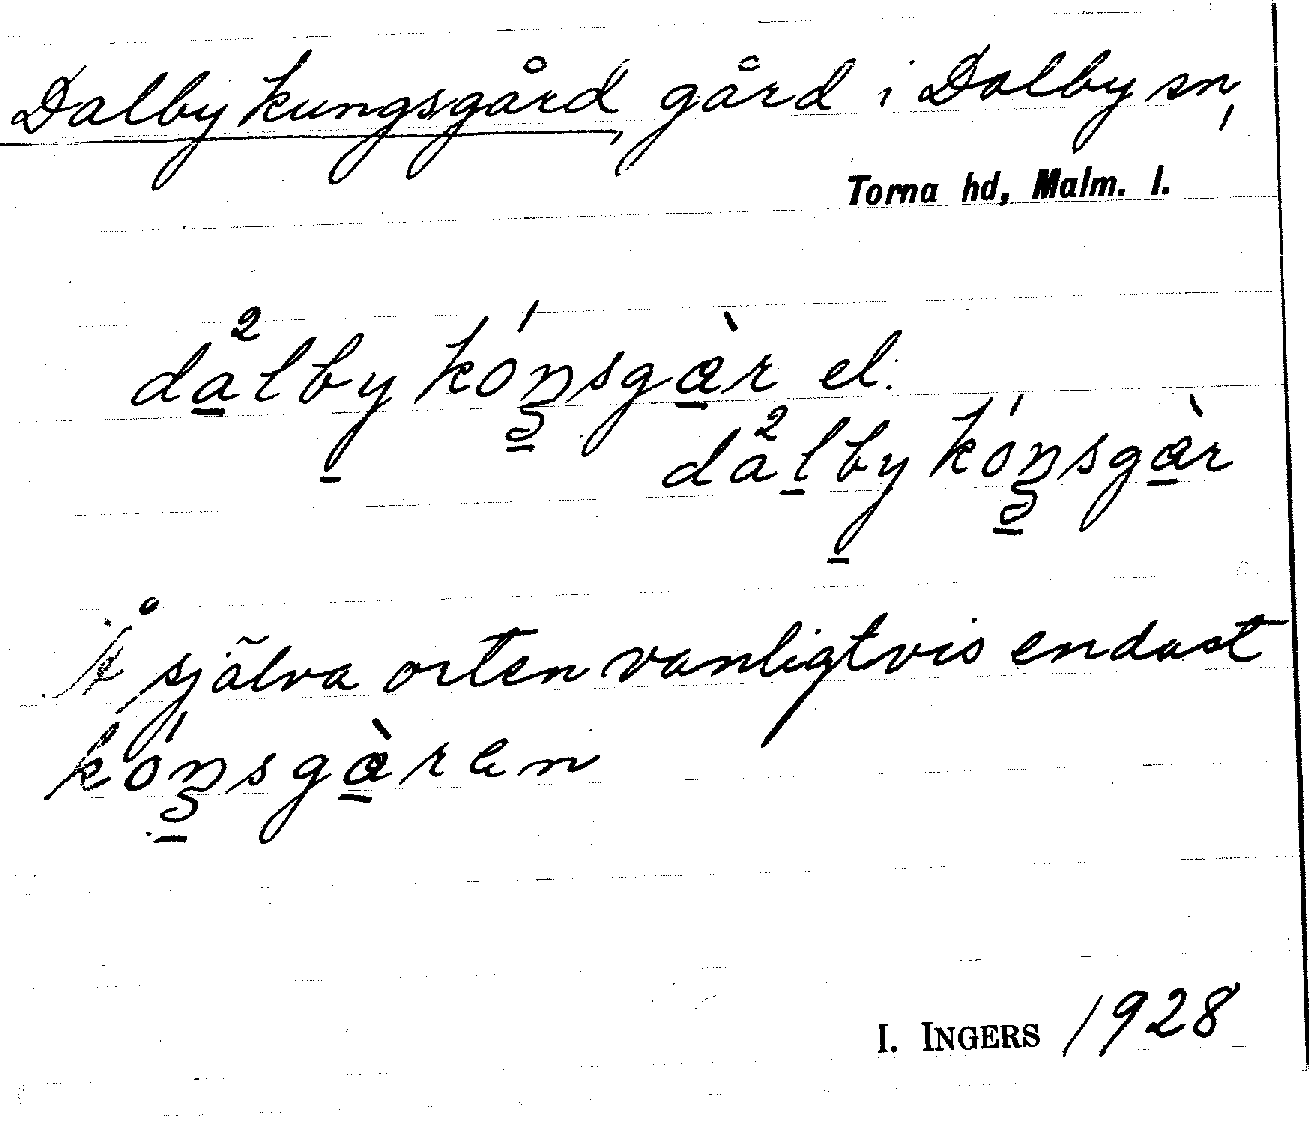 Dalby kungsgård, gård i Dalby sn,
Torna hd, Malm. l.
da̲²lby kóŋsgàr el.
da²l̲by kóŋsgàr
Å själva orten vanligtvis endast
kóŋsgàren
I. INGERS 1928